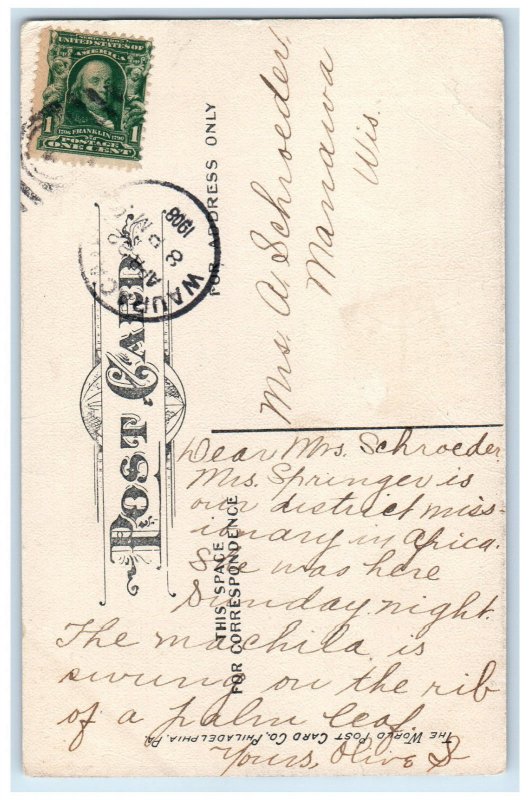 UNITED STATES OF
AMERICA
1
1
FRANKLIN
POSTAGE
ONE CENT
WAUPACA
APR
8 PM
1908
POST CARD
FOR ADDRESS ONLY
Mrs. A Schroeder
Manawa
Wis.
THIS SPACE
FOR CORRESPONDENCE
Dear Mrs. Schroeder,
Mrs. Springer is
our district miss-
ionary in Africa.
She was here
Sunday night.
The machila is
swung on the rib
of a palm leaf.
Yours, Olive S
THE WORLD POST CARD CO. PHILADELPHIA. PA